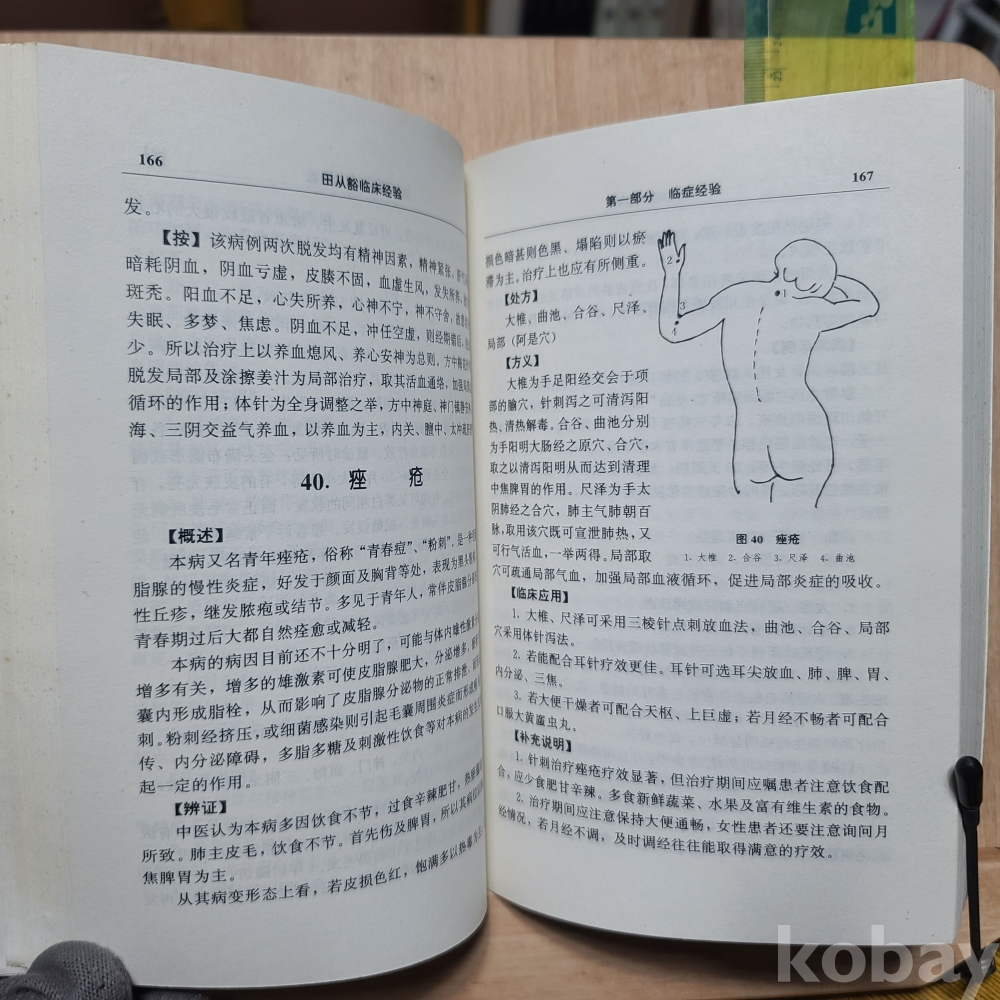 166
田从豁临床经验
发。
【按】该病例两次脱发均有精神因素，精神紧张，
暗耗阴血，阴血亏虚，皮腠不固，血虚生风，发失所养，
斑秃。阳血不足，心失所养，心神不宁，神不守舍，故
失眠、多梦、焦虑。阴血不足，冲任空虚，则经期错后，
少。所以治疗上以养血熄风、养心安神为总则，方中梅花
脱发局部及涂擦姜汁为局部治疗，取其活血通络，加强局部
循环的作用；体针为全身调整之举，方中神庭、神门镇静宁
海、三阴交益气养血，以养血为主，内关、膻中、太冲疏肝
40. 痤 疮
【概述】
本病又名青年痤疮，俗称“青春痘”、“粉刺”，是一种
脂腺的慢性炎症，好发于颜面及胸背等处，表现为黑头粉刺
性丘疹，继发脓疱或结节。多见于青年人，常伴皮脂腺分泌
青春期过后大都自然痊愈或减轻。
本病的病因目前还不十分明了，可能与体内雄性激素
增多有关，增多的雄激素可使皮脂腺肥大，分泌增多，
囊内形成脂栓，从而影响了皮脂腺分泌物的正常排泄，
刺。粉刺经挤压，或细菌感染则引起毛囊周围炎症而形成
传、内分泌障碍，多脂多糖及刺激性饮食等对本病的发生
起一定的作用。
【辨证】
中医认为本病多因饮食不节，过食辛辣肥甘，
所致。肺主皮毛，饮食不节。首先伤及脾胃，所以其病位
焦脾胃为主。
从其病变形态上看，若皮损色红，饱满多以热毒为主
第一部分 临症经验
167
损色暗甚则色黑、塌陷则以瘀
滞为主。治疗上也应有所侧重。
【处方】
大椎、曲池、合谷、尺泽、
局部（阿是穴）
【方义】
大椎为手足阳经交会于项
部的腧穴，针刺泻之可清泻阳
热、清热解毒。合谷、曲池分别
为手阳明大肠经之原穴、合穴，
取之以清泻阳明从而达到清理
中焦脾胃的作用。尺泽为手太
阴肺经之合穴，肺主气肺朝百
脉，取用该穴既可宣泄肺热，又
可行气活血，一举两得。局部取
穴可疏通局部气血，加强局部血液循环，促进局部炎症的吸收。
2
3
4
1
图 40 痤疮
1. 大椎 2. 合谷 3. 尺泽 4. 曲池
【临床应用】
1. 大椎、尺泽可采用三棱针点刺放血法，曲池、合谷、局部
穴采用体针泻法。
2. 若能配合耳针疗效更佳。耳针可选耳尖放血、肺、脾、胃、
内分泌、三焦。
3. 若大便干燥者可配合天枢、上巨虚；若月经不畅者可配合
口服大黄䗪虫丸。
【补充说明】
1. 针刺治疗痤疮疗效显著，但治疗期间应嘱患者注意饮食配
合，应少食肥甘辛辣。多食新鲜蔬菜、水果及富有维生素的食物。
2. 治疗期间应注意保持大便通畅，女性患者还要注意询问月
经情况，若月经不调，及时调经往往能取得满意的疗效。
kobay